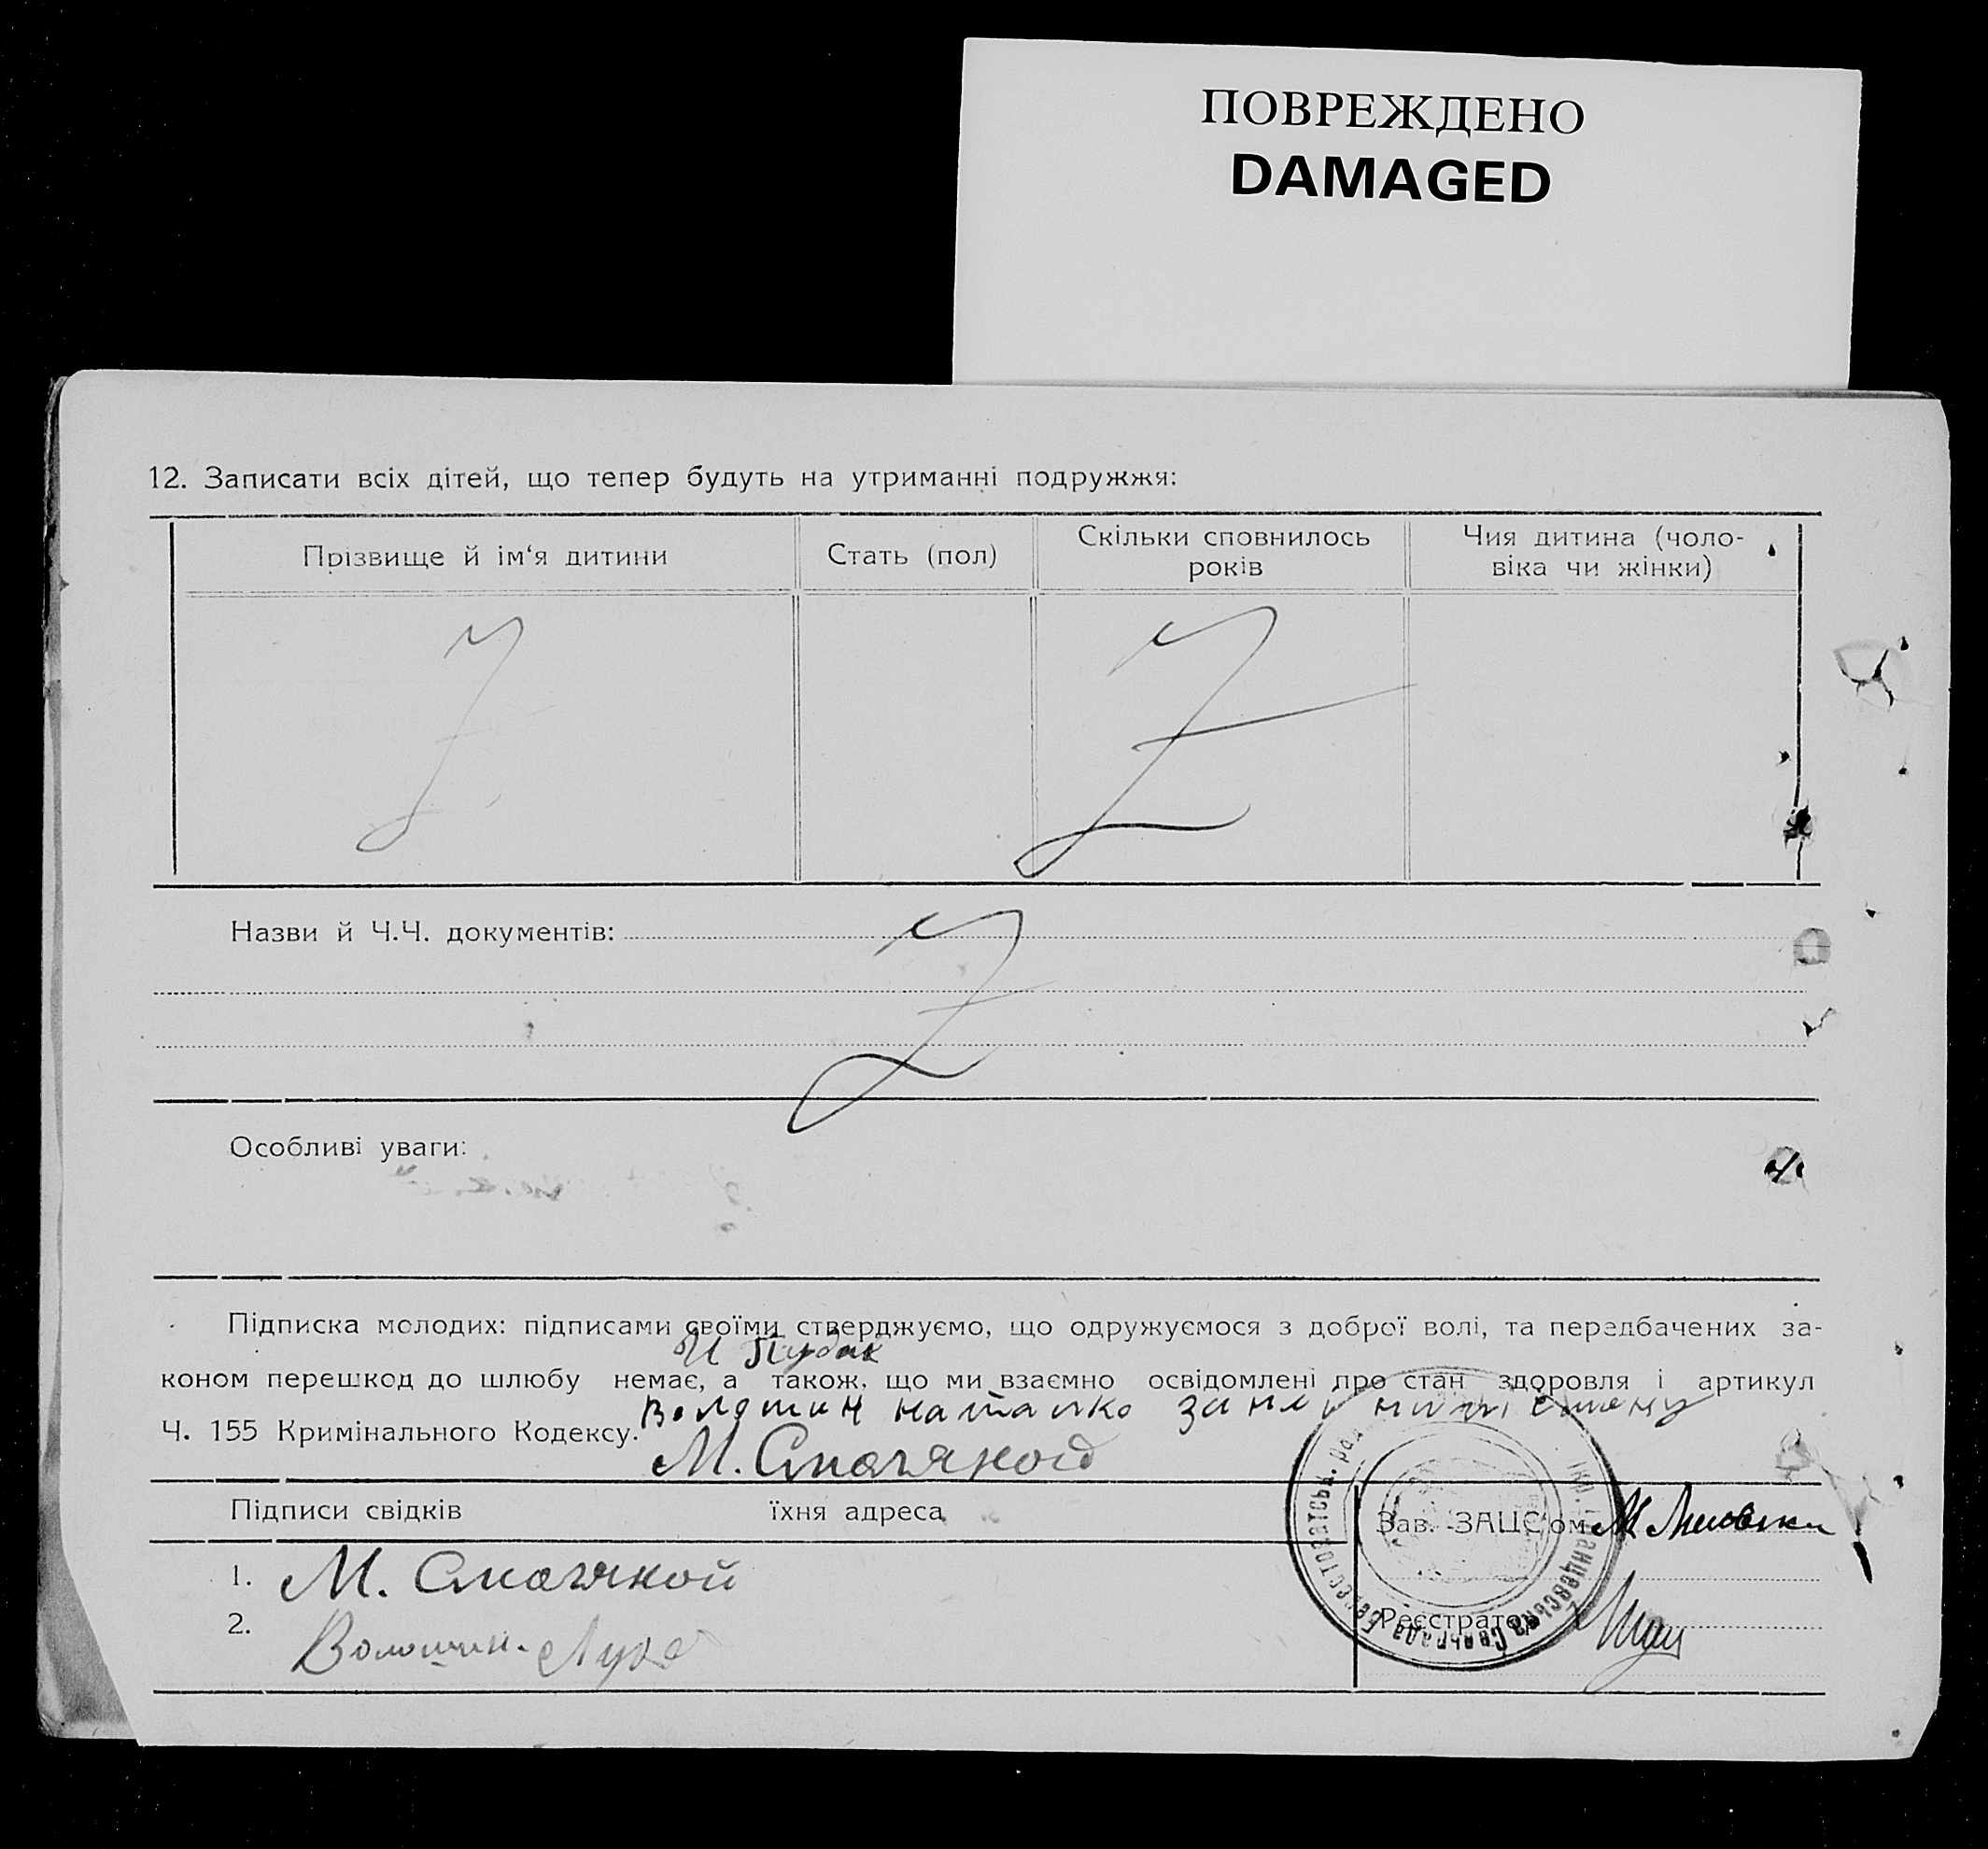 ПОВРЕЖДЕНО
DAMAGED
12. Записати всіх дітей, що тепер будуть на утриманні подружжя:
Прізвище й ім'я дитини
Стать (пол)
Скільки сповнилось
років
Чия дитина (чоло-
віка чи жінки)
Назви й Ч.Ч. документів:
Особливі уваги:
Підписка молодих: підписами своїми стверджуємо, що одружуємося з доброї волі, та передбачених за-
коном перешкод до шлюбу немає, а також, що ми взаємно освідомлені про стан здоровля і артикул
Волошин Наталко за
Ч. 155 Кримінального Кодексу.
Підписи свідків
їхня адреса
Зав. ЗАЦС'ом
1. М.
2.
Волошин
Реєстратор